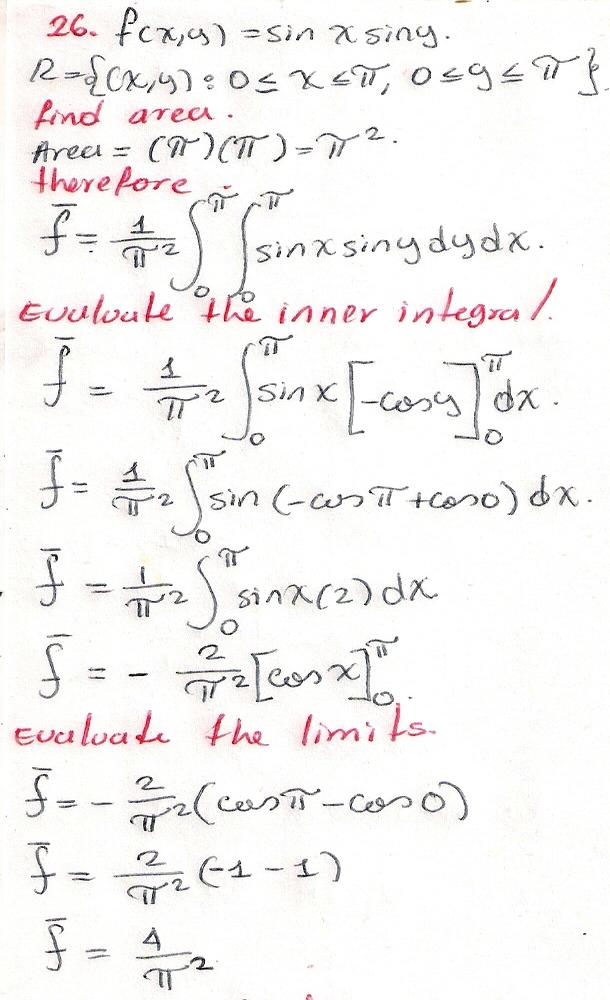 26. f(x,y) = sin x sin y.
R = {(x,y) : 0 ≤ x ≤ π, 0 ≤ y ≤ π}.
find area.
Area = (π)(π) = π².
therefore
f̄ = 1/π² ∫₀^π ∫₀^π sin x sin y dy dx.
Evaluate the inner integral.
f̄ = 1/π² ∫₀^π sin x [-cos y]₀^π dx.
f̄ = 1/π² ∫₀^π sin (-cos π + cos 0) dx.
f̄ = 1/π² ∫₀^π sin x (2) dx
f̄ = - 2/π² [cos x]₀^π.
Evaluate the limits.
f̄ = - 2/π² (cos π - cos 0)
f̄ = 2/π² (-1 - 1)
f̄ = 4/π²